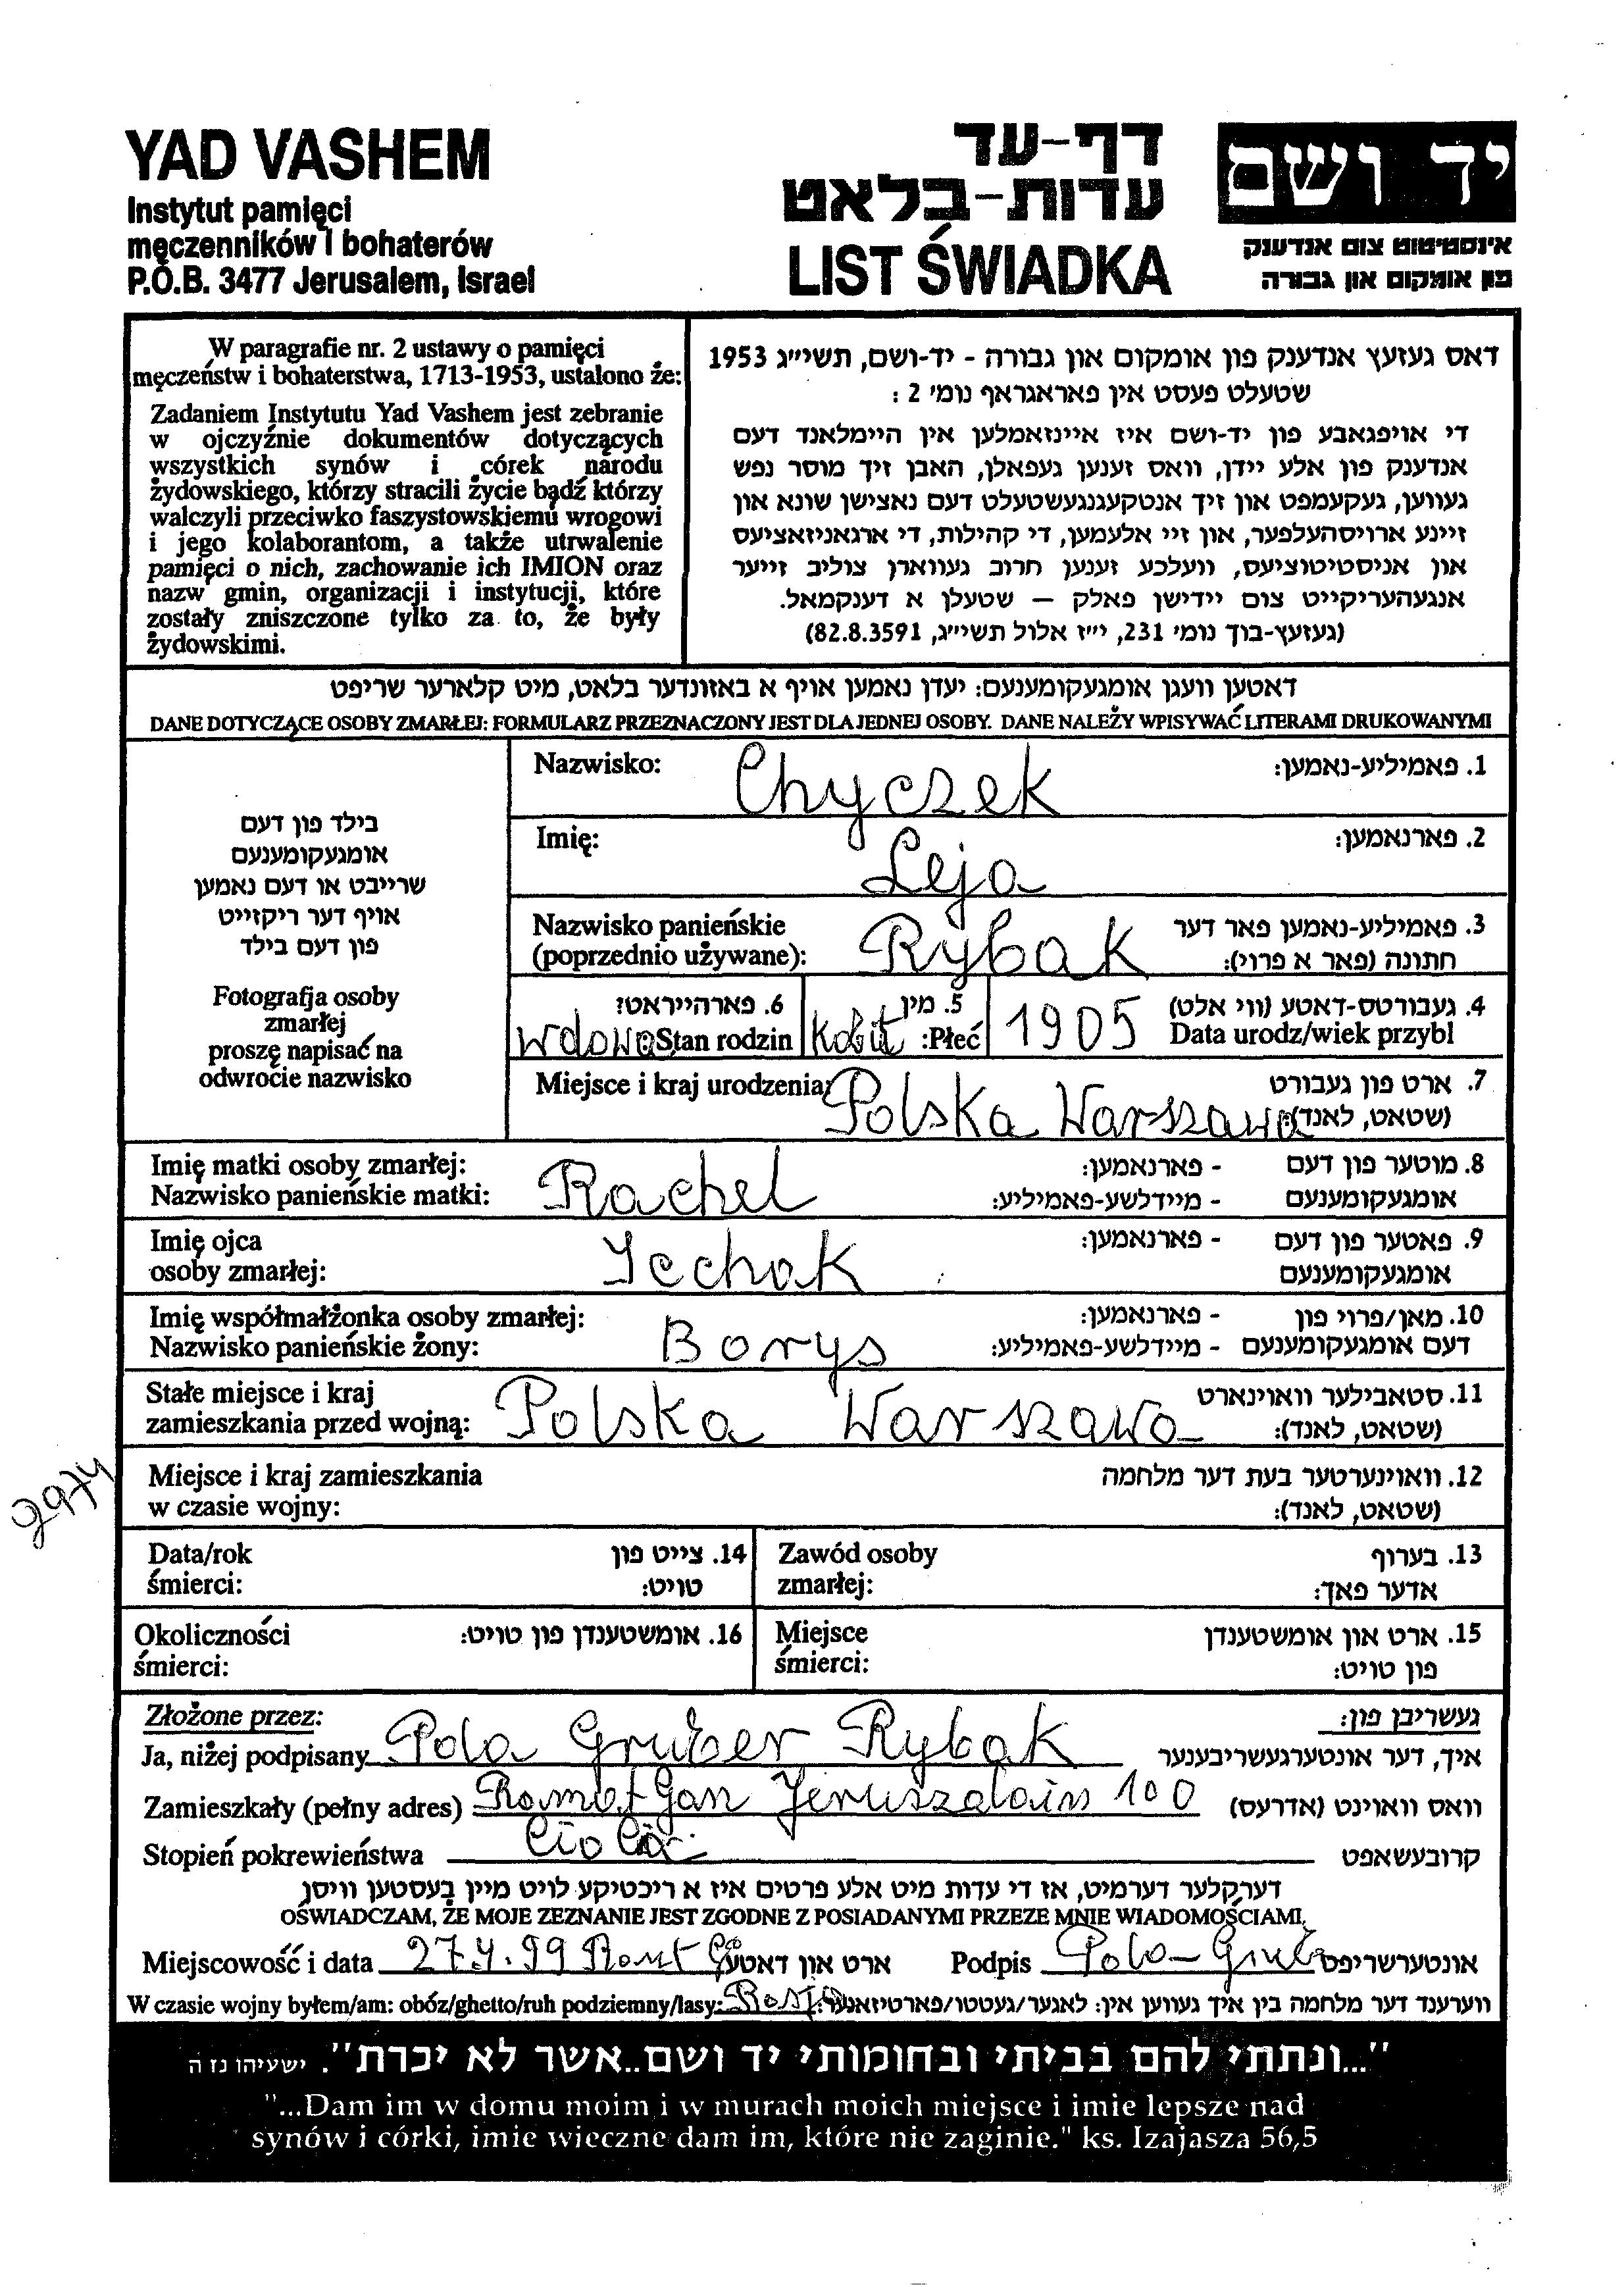 YAD VASHEM
Instytut pamięci
męczenników i bohaterów
P.O.B. 3477 Jerusalem, Israel
דף-עד
עדות-בלאט
LIST ŚWIADKA
יד ושם
אינסטיטוט צום אנדענק
פון אומקום און גבורה
W paragrafie nr. 2 ustawy o pamięci
męczeństw i bohaterstwa, 1713-1953, ustalono że:
Zadaniem Instytutu Yad Vashem jest zebranie
w ojczyźnie dokumentów dotyczących
wszystkich synów i córek narodu
żydowskiego, którzy stracili życie bądź którzy
walczyli przeciwko faszystowskiemu wrogowi
i jego kolaborantom, a także utrwalenie
pamięci o nich, zachowanie ich IMION oraz
nazw gmin, organizacji i instytucji, które
zostały zniszczone tylko za to, że były
żydowskimi.
דאס געזעץ אנדענק פון אומקום און גבורה - יד-ושם, תשי״ג 1953
שטעלט פעסט אין פאראגראף נומ׳ 2 :
די אויפגאבע פון יד-ושם איז איינזאמלען אין היימלאנד דעם
אנדענק פון אלע יידן, וואס זענען געפאלן, האבן זיך מוסר נפש
געווען, געקעמפט און זיך אנטקעגנגעשטעלט דעם נאצישן שונא און
זיינע ארויסהעלפער, און זיי אלעמען, די קהילות, די ארגאניזאציעס
און אניסטיטוציעס, וועלכע זענען חרוב געווארן צוליב זייער
אנגעהעריקייט צום יידישן פאלק — שטעלן א דענקמאל.
(געזעץ-בוך נומ׳ 231, י״ז אלול תשי״ג, 82.8.3591)
דאטען וועגן אומגעקומענעם: יעדן נאמען אויף א באזונדער בלאט, מיט קלארער שריפט
DANE DOTYCZĄCE OSOBY ZMARŁEJ: FORMULARZ PRZEZNACZONY JEST DLA JEDNEJ OSOBY. DANE NALEŻY WPISYWAĆ LITERAMI DRUKOWANYMI
בילד פון דעם
אומגעקומענעם
שרייבט או דעם נאמען
אויף דער ריקזייט
פון דעם בילד
Fotografja osoby
zmarłej
proszę napisać na
odwrocie nazwisko
Nazwisko: Chyczek 1. פאמיליע-נאמען:
Imię: Leja 2. פארנאמען:
Nazwisko panieńskie 3. פאמיליע-נאמען פאר דער
(poprzednio używane): Rybak חתונה (פאר א פרוי):
6. פארהייראט? 5. מין 4. געבורטס-דאטע (ווי אלט)
wdowa Stan rodzin Kobit Płeć: 1905 Data urodz/wiek przybl
Miejsce i kraj urodzenia: 7. ארט פון געבורט
Polska Warszawa (שטאט, לאנד):
Imię matki osoby zmarłej: 8. מוטער פון דעם - פארנאמען:
Nazwisko panieńskie matki: Rachel אומגעקומענעם - מיידלשע-פאמיליע:
Imię ojca 9. פאטער פון דעם - פארנאמען:
osoby zmarłej: Icchak אומגעקומענעם
Imię współmałżonka osoby zmarłej: 10. מאן/פרוי פון - פארנאמען:
Nazwisko panieńskie żony: Borys דעם אומגעקומענעם - מיידלשע-פאמיליע:
Stałe miejsce i kraj 11. סטאבילער וואוינארט
zamieszkania przed wojną: Polska Warszawa (שטאט, לאנד):
Miejsce i kraj zamieszkania 12. וואוינערטער בעת דער מלחמה
w czasie wojny: (שטאט, לאנד):
Data/rok 14. צייט פון Zawód osoby 13. בערוף
śmierci: טויט: zmarłej: אדער פאך:
Okoliczności 16. אומשטענדן פון טויט: Miejsce 15. ארט און אומשטענדן
śmierci: śmierci: פון טויט:
Złożone przez: געשריבן פון:
Ja, niżej podpisany Pola Gruber Rybak איך, דער אונטערגעשריבענער
Zamieszkały (pełny adres) Ramat Gan Jeruszalaim 100 וואס וואוינט (אדרעס)
Stopień pokrewieństwa Ciocia קרובעשאפט
דערקלער דערמיט, אז די עדות מיט אלע פרטים איז א ריכטיקע לויט מיין בעסטען וויסן
OŚWIADCZAM, ŻE MOJE ZEZNANIE JEST ZGODNE Z POSIADANYMI PRZEZE MNIE WIADOMOŚCIAMI.
Miejscowość i data ארט און דאטע Podpis Pola Grub אונטערשריפט
W czasie wojny byłem/am: obóz/ghetto/ruh podziemny/lasy: Rosja ווערענד דער מלחמה בין איך געווען אין: לאגער/געטטו/פארטיזאנער:
"...ונתתי להם בביתי ובחומותי יד ושם..אשר לא יכרת". ישעיהו נז ה
"...Dam im w domu moim i w murach moich miejsce i imie lepsze nad
synów i córki, imie wieczne dam im, które nie zaginie." ks. Izajasza 56,5